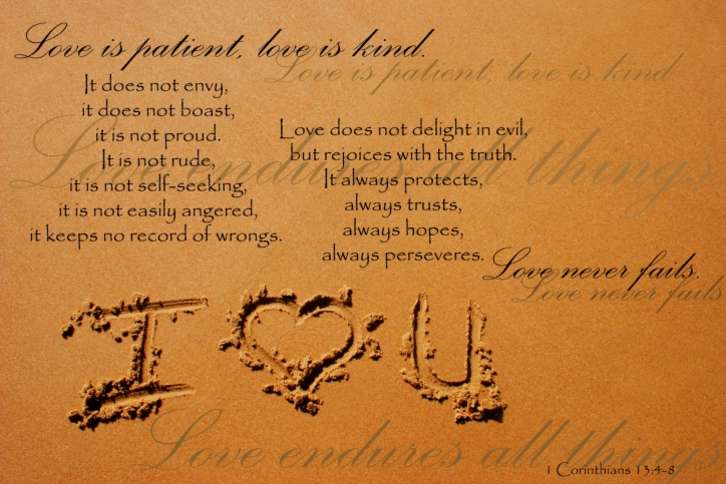 Love is patient, love is kind.
Love is patient, love is kind
It does not envy,
it does not boast,
it is not proud.
It is not rude,
it is not self-seeking,
it is not easily angered,
it keeps no record of wrongs.
Love endures all things
Love does not delight in evil,
but rejoices with the truth.
It always protects,
always trusts,
always hopes,
always perseveres.
Love never fails.
Love never fails
I ♥ U
Love endures all things
1 Corinthians 13:4-8